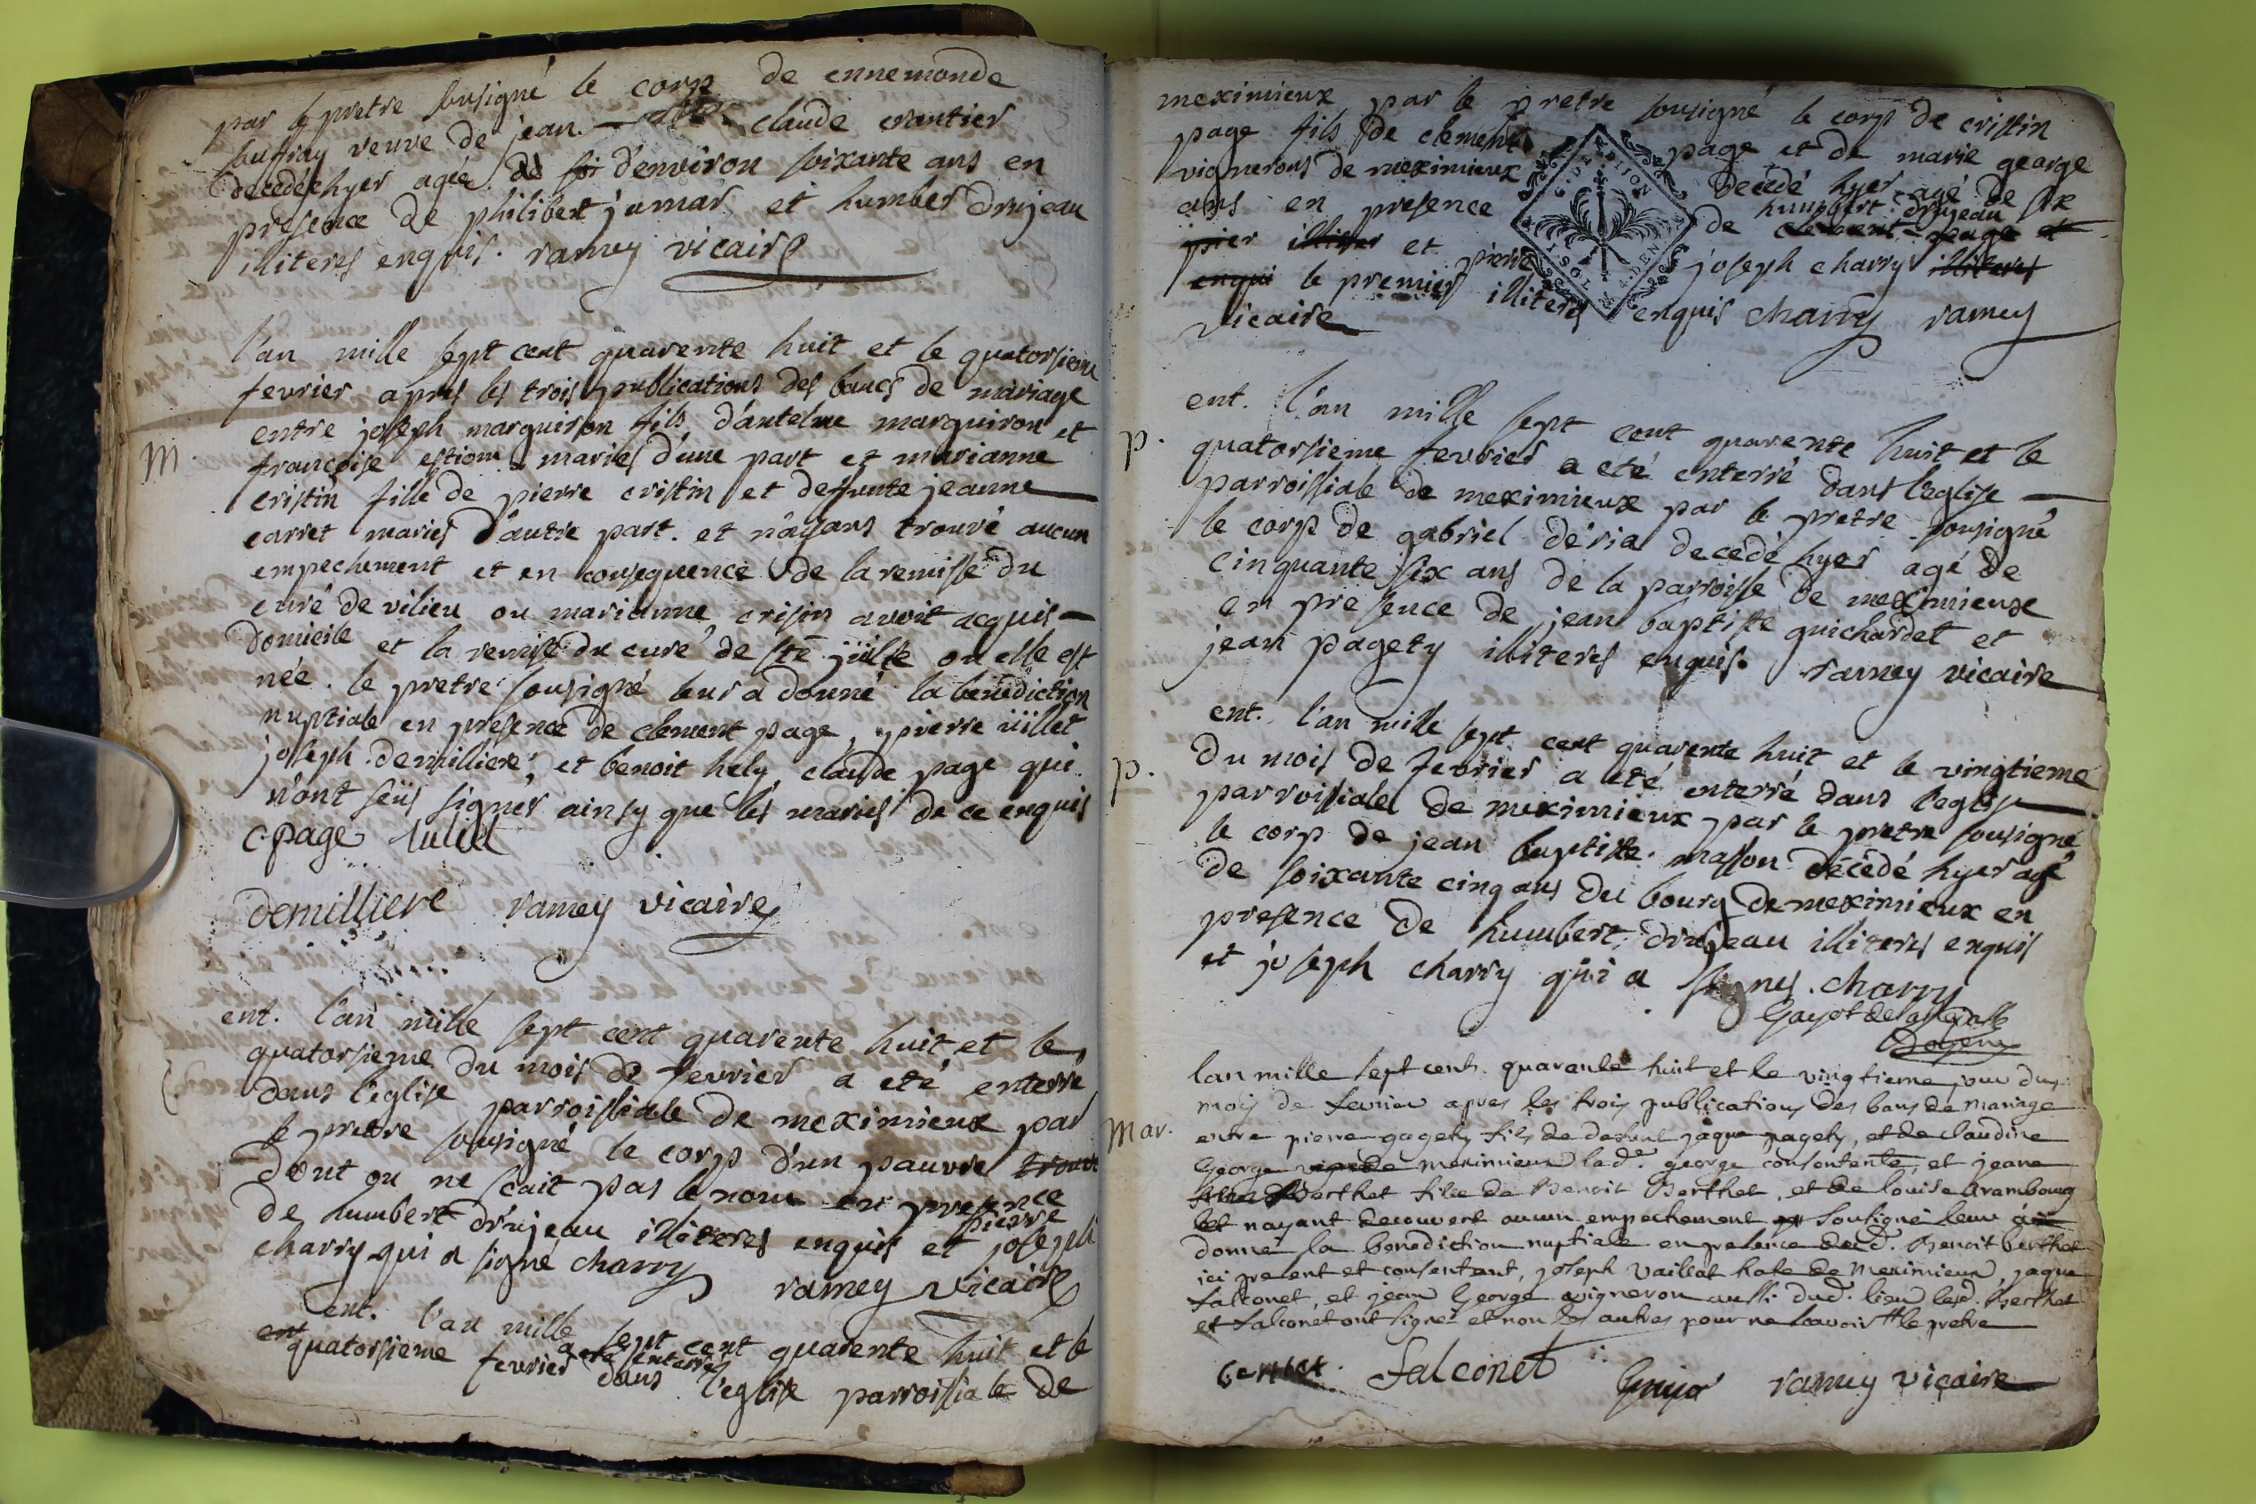 par le pretre sousigné le corp de ennemonde
suffray veuve de jean claude
decedé hyer agée de d'environ soixante ans en
presence de philibert jumar et humber drujeau
illiteres enquis. ramey vicaire
l'an mille sept cent quarente huit et le quatorsieme
fevrier apres les trois publications des bancs de mariage
M. entre joseph marguiron fils d'antelme marguiron et
francoise estione mariés d'une part et marianne
cristin fille de pierre cristin et deffunte jeanne
carret mariés d'autre part. et n'ayans trouvé aucun
empechement et en consequence de la remisse du
curé de vilieu ou marianne crisin avoit acquis
domicile et la remise du curé de ste jülle ou elle est
née. le pretre sousigné leur a donné la benediction
nuptiale en presence de clement page, pierre iüllet
joseph demilliere, et benoit hely, claude page qui
n'ont seüs signer ainsy que les mariés de ce enquis
c. page iuliet
demilliere ramey vicaire
ent. l'an mille sept cent quarente huit et le
quatorsieme du mois de fevrier a eté enterré
dans l'eglise parroissiale de meximieux par
le pretre sousigné le corp d'un pauvre
dont on ne scait pas le nom en presence
de humbert drujeau illiteres enquis et pierre joseph
charry qui a signé charry ramey vicaire
ent. l'an mille sept cent quarente huit et le
ent quatorsieme fevrier a eté enterré dans l'eglise parroissiale de
meximieux par le pretre sousigné le corp de cristin
page fils de clement page et de marie george
vignerons de meximieux decédé hyer agé de six
ans en presence de humbert drujeau clement page et
pier illiter et pierre joseph charry illiteres
enqui le premier illiteres enquis charry ramey
vicaire
ent. l'an mille sept cent quarente huit et le
p. quatorsieme fevrier a eté enterré dans l'eglise
parroissiale de meximieux par le pretre sousigné
le corp de gabriel déria decédé hyer agé de
cinquante six ans de la parroisse de meximieux
en presence de jean baptiste guichardet et
jean pagety illiteres enquis. ramey vicaire
ent. l'an mille sept cent quarente huit et le vingtieme
p. du mois de fevrier a eté enterré dans l'eglise
parroissiale de meximieux par le pretre sousigné
le corp de jean baptiste masson decédé hyer agé
de soixante cinq ans du bourg de meximieux en
presence de humbert drujeau illiteres enquis
et joseph charry qui a signes. charry
Gayot de
Doyen
lan mille sept cent quarante huit et le vingtieme jour du
mois de fevrier apres les trois publications des bans de mariage
Mar. entre pierre pagety fils de defunt jaque pagety, et de claudine
George meximieux lade. george consentente, et jeane
Berthet fille de Benoit Berthet, et de louise arambourg
et nayant decouvert aucun empechement sousigné leur ai
donné la benediction nuptiale en presence dud. Benoit berthet
ici present et consentant, joseph vaillat hote de Meximieux, jaque
falconet, et jean George vigneron aussi dud. lieu lesd. Berthet
et falconet ont signé et non les autres pour ne scavoir le pretre
bertet. falconet Guyot ramey vicaire